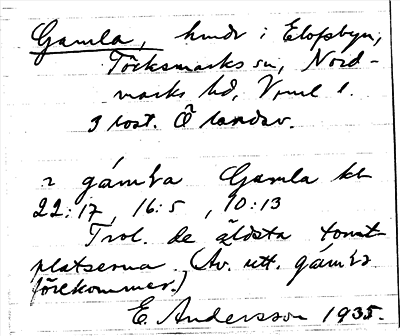 Gamla, hmdr i Elofsbyn,
Töcksmarks sn, Nord-
marks hd, Vrml l.
3 bost. Ö landsv.
gám̀ɫa Gamla kt
22:17, 16:5, 10:13
Trol. de äldsta tomt-
platserna. (Äv. utt. gám̀ɫa
förekommer.)
E Andersson 1935.